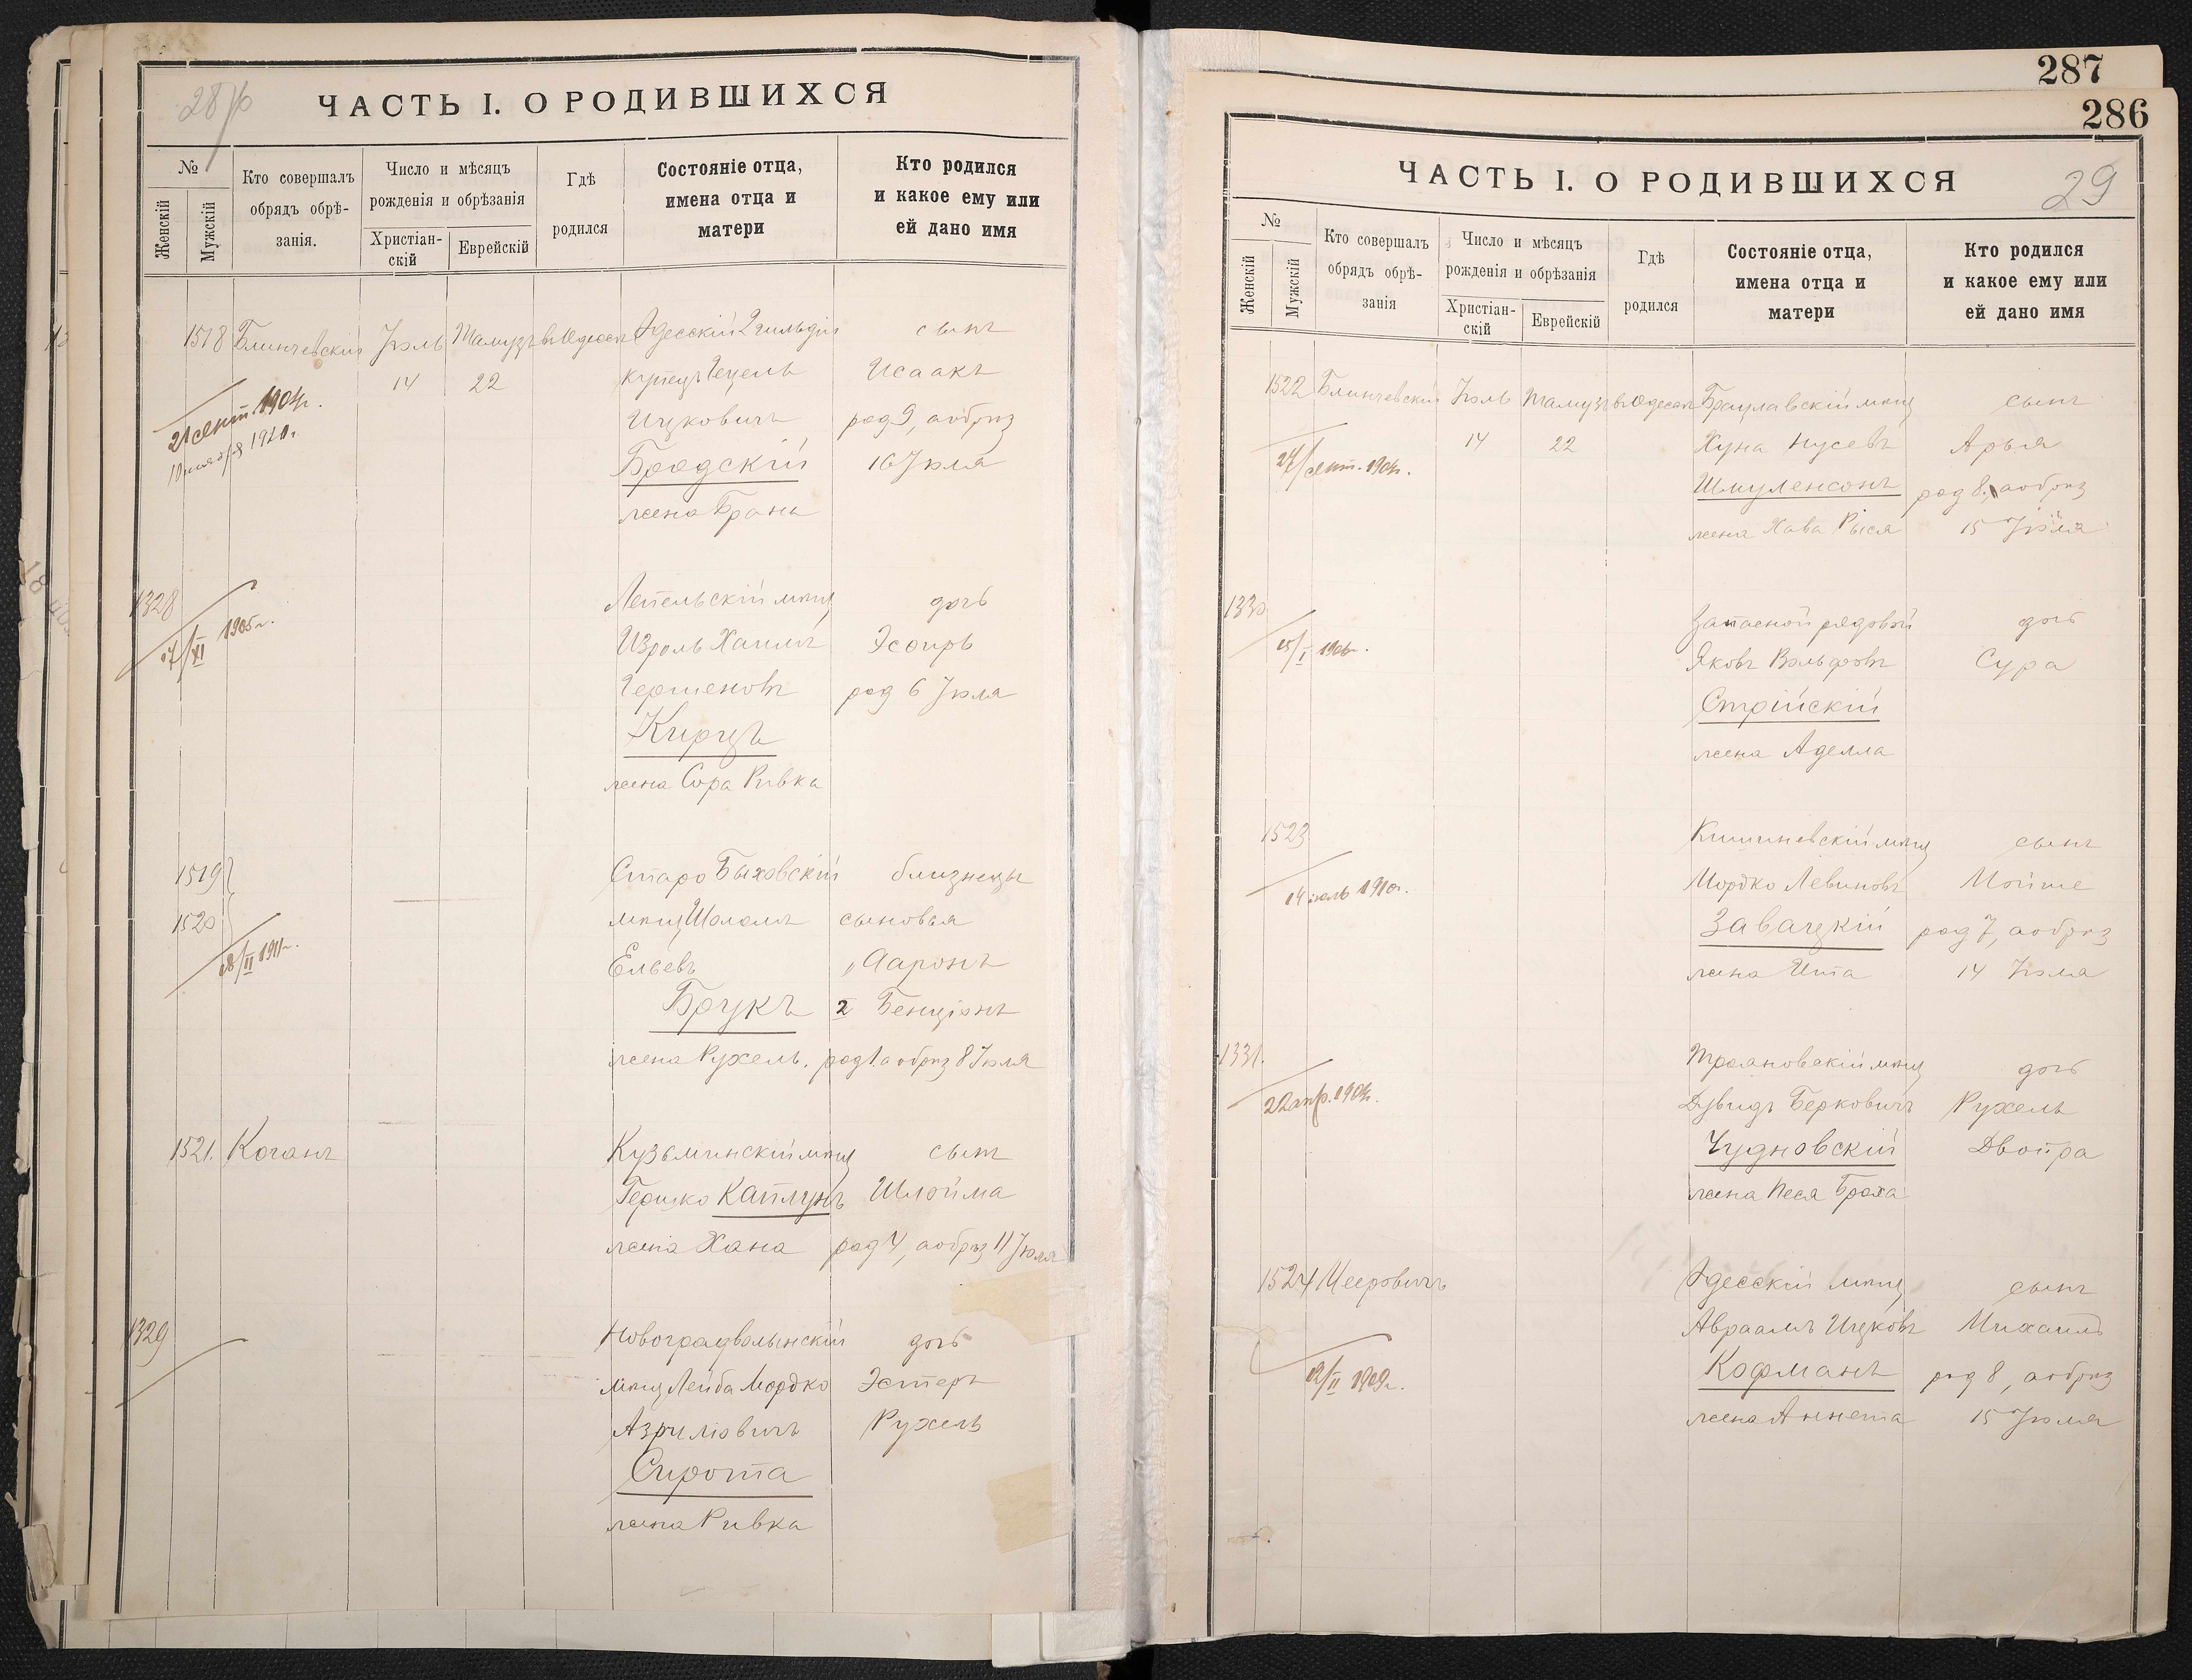 28/б
ЧАСТЬ I. О РОДИВШИХСЯ
№
Женскій
Мужскій
Кто совершалъ
обрядъ обрѣ-
занія.
Число и мѣсяцъ
рожденія и обрѣзанія
Христіан-
скій
Еврейскій
Гдѣ
родился
Состояніе отца,
имена отца и
матери
Кто родился
и какое ему или
ей дано имя
1518 Блинчевскій Іюль Тамузъ въ Одессѣ Одесскій 2 гильдіи сынъ
14 22 купецъ Гецель Исаакъ
21 сент. 1904г.
Ицковичъ род 9, а обрѣз
10 ноября 1910г.
Бродскій 16 Іюля
жена Брана
1328 Лепельскій мѣщ дочь
17/XI 1905г.
Изроль Хаимъ Эсѳирь
Гершеновъ род 6 Іюля
Кирцъ
жена Сора Ривка
1519 Старо Быховскій близнецы
1520 мѣщ Шоломъ сыновья
18/II 1911г.
Ельевъ Ааронъ
Брукъ 2 Бенціонъ
жена Рухель. род 1. а обрѣз 8 Іюля
1521. Коганъ Кузьминскій мѣщ сынъ
Гершко Каплунъ Шлойма
жена Хана род 4, а обрѣз 11 Іюля
1329 Новоградволынскій дочь
мѣщ Лейба Мордко Эстеръ
Азриліовичъ Рухель
Сирота
жена Ривка
287
286
29
ЧАСТЬ I. О РОДИВШИХСЯ
№
Женскій
Мужскій
Кто совершалъ
обрядъ обрѣ-
занія
Число и мѣсяцъ
рожденія и обрѣзанія
Христіан-
скій
Еврейскій
Гдѣ
родился
Состояніе отца,
имена отца и
матери
Кто родился
и какое ему или
ей дано имя
1522 Блинчевскій Іюль Тамузъ въ Одессѣ Брацлавскій мѣщ сынъ
14 22 Хуна Нусевъ Арья
24/сент. 1904г.
Шмуленсонъ род 8, а обрѣз
жена Хава Рыся 15 Іюля
1330 Запасной рядовой дочь
15/I 1906г.
Яковъ Вольфовъ Сура
Стрійскій
жена Аделла
1523 Кишиневскій мѣщ сынъ
14 іюль 1910г.
Мордко Левиновъ Мойше
Завацкій род 7, а обрѣз
жена Ита 14 Іюля
1331. Трояновскій мѣщ дочь
22 апр. 1904г.
Дувидъ Берковичъ Рухель
Чудновскій Двойра
жена Песя Броха
1524 Мееровичъ Одесскій мѣщ сынъ
Авраамъ Ицковъ Михаилъ
12/II 1909г.
Кофманъ род 8, а обрѣз
жена Аннета 15 Іюля